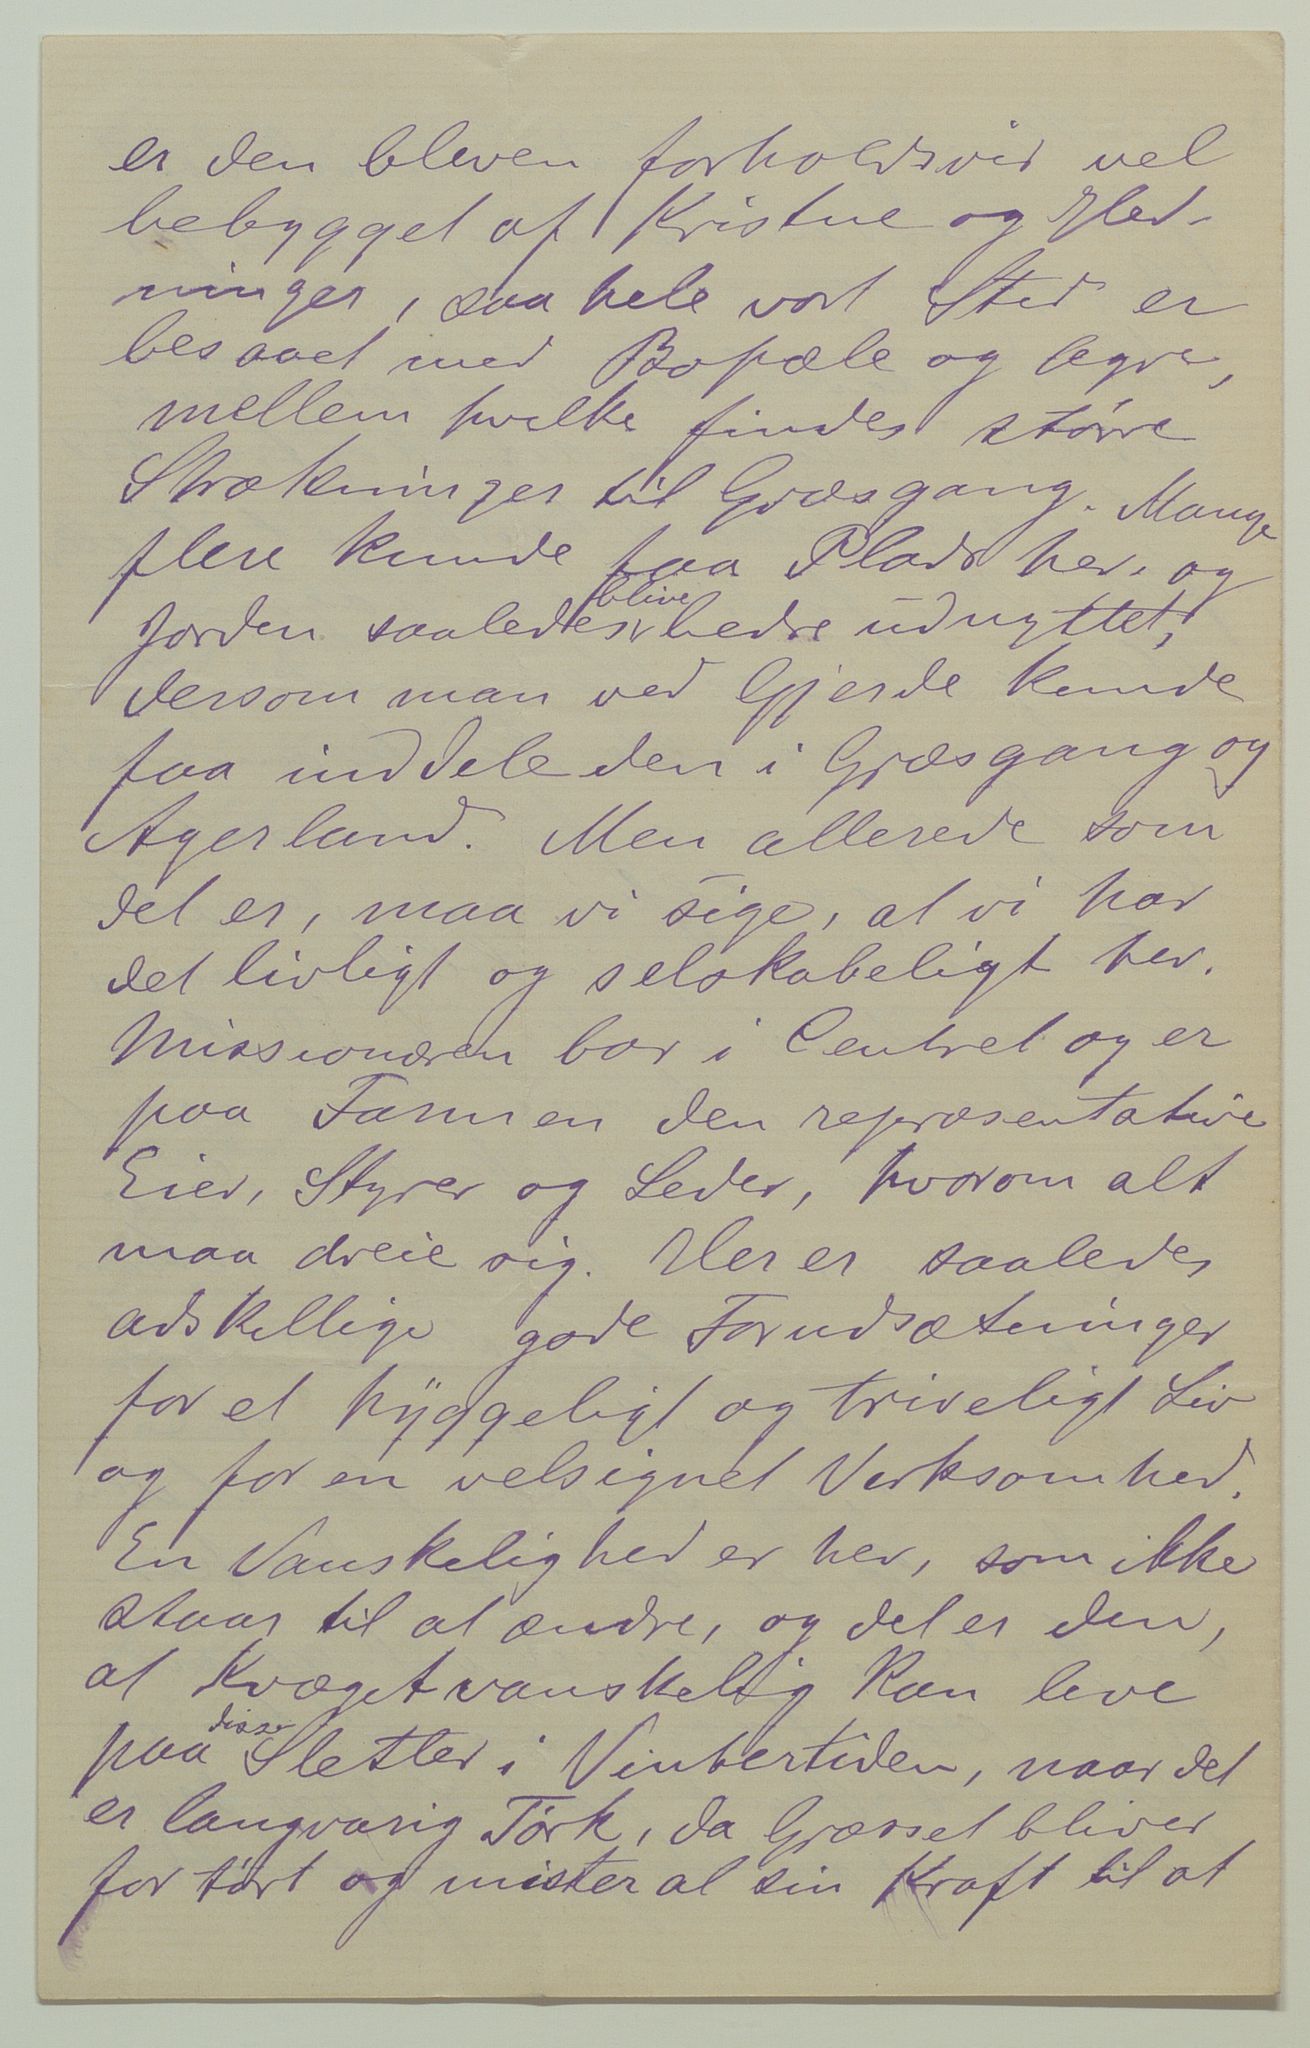 er den bleven forholdsvis vel
bebygget af Kristne og Hed-
ninger, saa hele vort Sted er
besaaet med Bopæle og Agre,
mellem hvilke findes større
Strækninger til Græsgang. Mange
flere kunde faa Plads her, og
Jorden saaledes blive bedre udnyttet,
dersom man ved Gjerde kunde
faa inddele den i Græsgang og
Agerland. Men allerede som
det er, maa vi sige, at vi har
det livligt og selskabeligt her.
Missionæren bor i Centret og er
paa Farmen den repræsentative
Eier, Styrer og Leder, hvorom alt
maa dreie sig. Her er saaledes
adskillige gode Forudsætninger
for et hyggeligt og triveligt Liv
og for en velsignet Virksomhed.
En Vanskelighed er her, som ikke
staar til at ændre, og det er den,
at Kvæget vanskelig kan leve
paa disse Sletter i Vintertiden, naar det
er langvarig Tørk, da Græsset bliver
for tørt og mister al sin Kraft til at